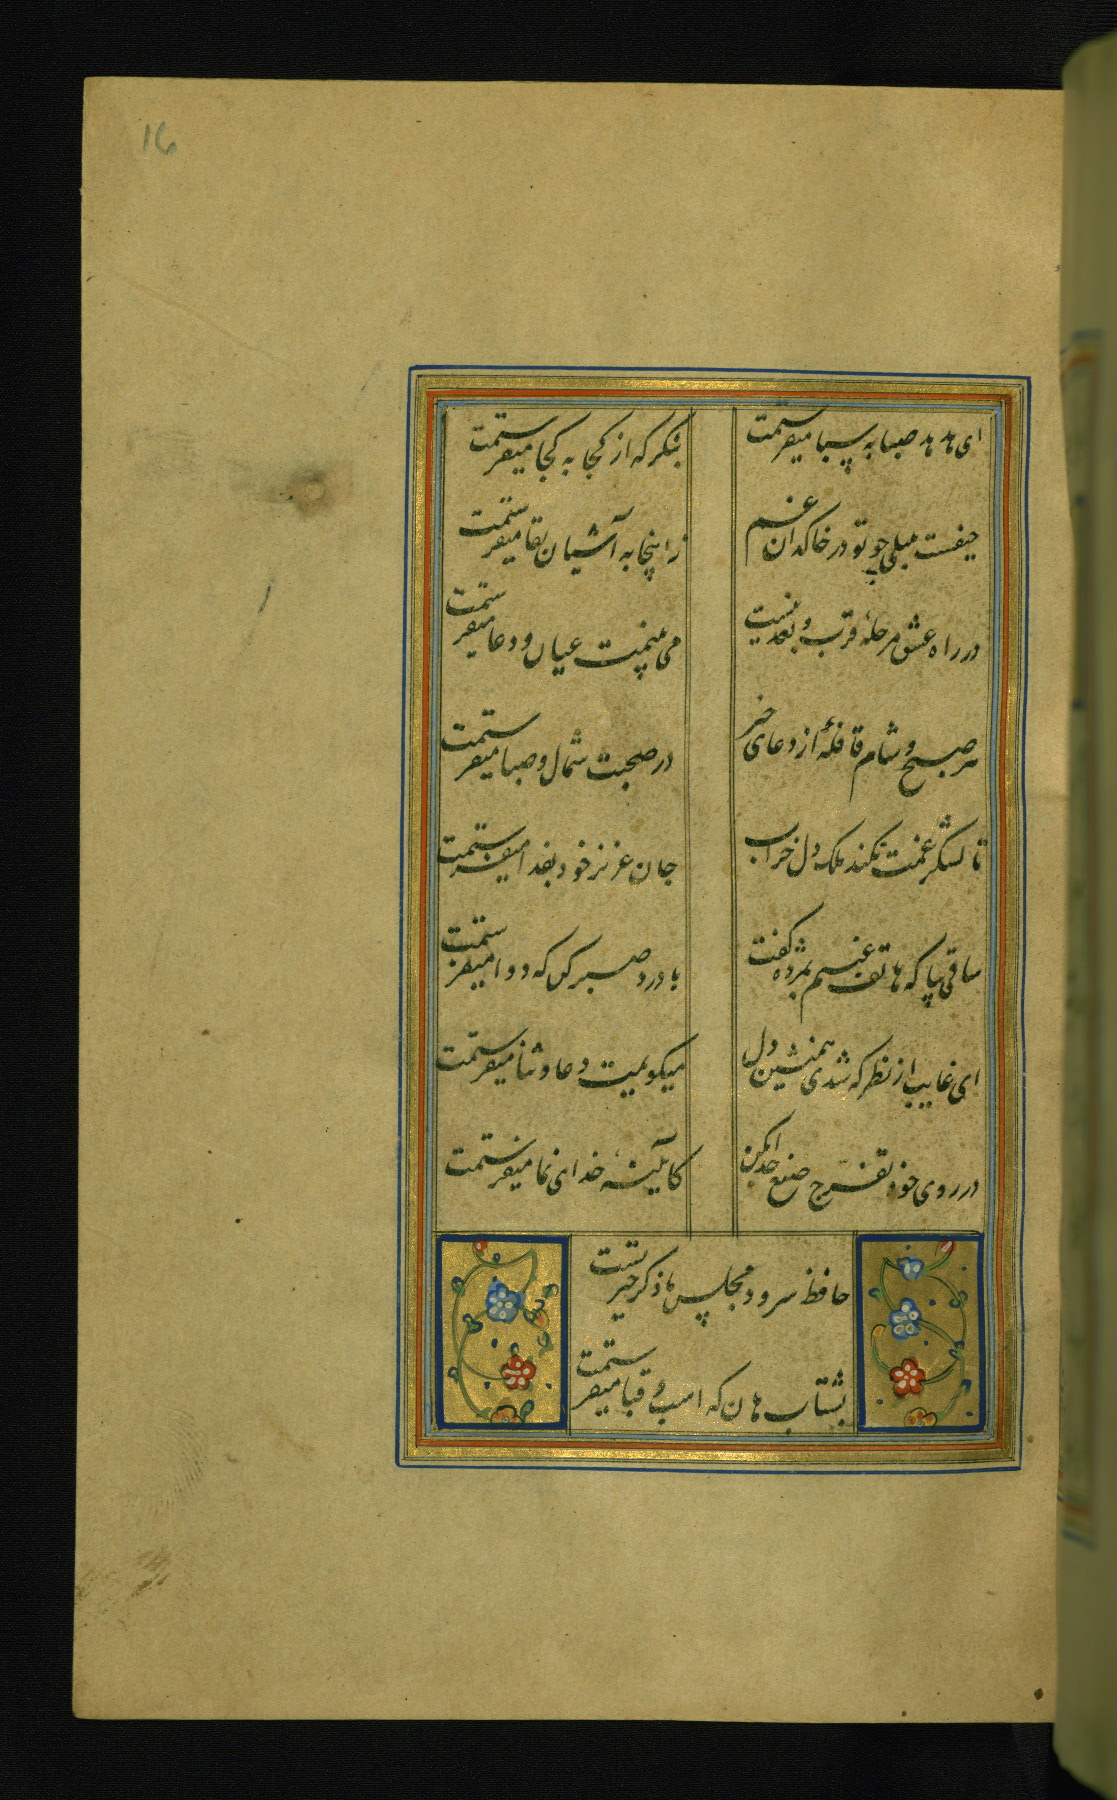 16
ای هدهد صبا به سبا میفرستمت
بنگر که از کجا به کجا میفرستمت
حیفست بلبلی چو تو در خاکدان غم
زاینجا به آشیان بقا میفرستمت
در راه عشق مرحلهٔ قرب و بعد نیست
می بینمت عیان و دعا میفرستمت
هر صبح و شام قافلهٔ از دعای خیر
در صحبت شمال و صبا میفرستمت
تا لشکر غمت نکند ملک دل خراب
جان عزیز خود بفدا میفرستمت
ساقی بیا که هاتف غیبم بمژده گفت
با درد صبر کن که دوا میفرستمت
ای غایب از نظر که شدی همنشین دل
میگویمت دعا و ثنا میفرستمت
در روی خود تفرج صنع خدا بکن
کایینهٔ خدای نما میفرستمت
حافظ سرود مجلس ما ذکر خیر تست
بشتاب هان که اسب و قبا میفرستمت